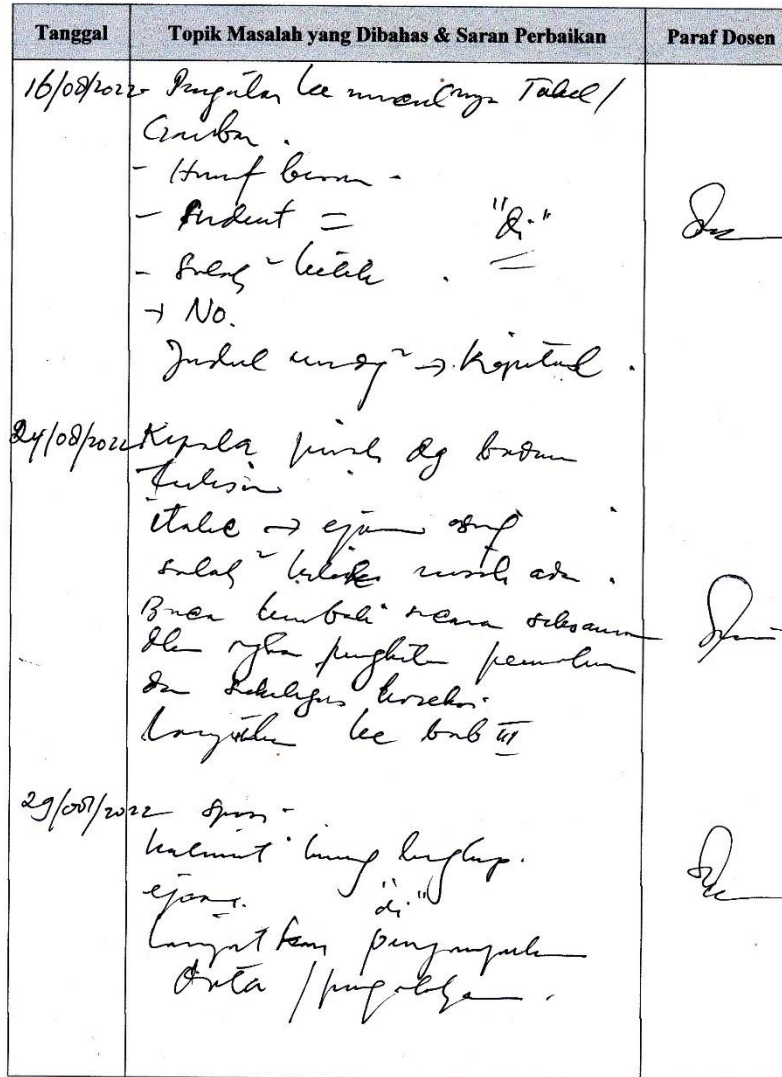 Tanggal Topik Masalah yang Dibahas & Saran Perbaikan Paraf Dosen
16/08/2022 Tabel /
Gambar.
- Huruf besar -
- Indent = "di"
- Salah² ketik .
→ No.
Judul → Kapital .
24/08/2022 Kepala dg badan
tulisan
italic → ejaan asing
salah² masih ada .
Baca kembali secara seksama
dan sekaligus koreksi.
Lanjutkan ke bab III
29/08/2022 spasi -
kalimat kurang lengkap.
ejaan. "di"
Lanjutkan pengumpulan
data /